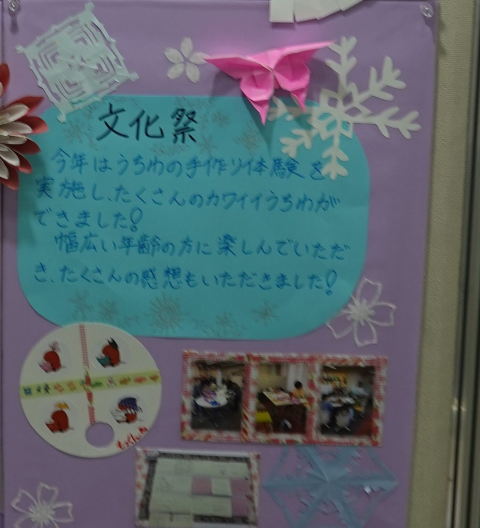 文化祭
今年はうちわの手作り体験を
実施し、たくさんのカワイイうちわが
できました!
幅広い年齢の方に楽しんでいただ
き、たくさんの感想もいただきました!